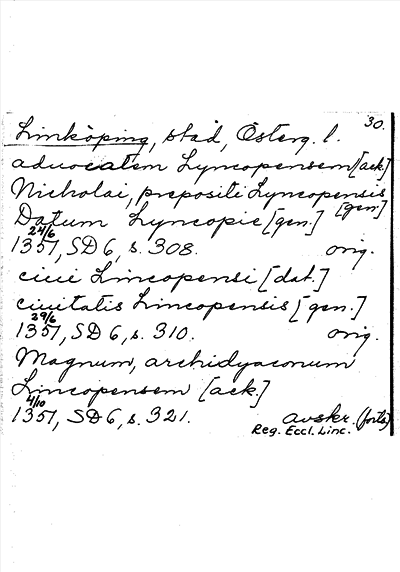 30.
Linköping, stad, Österg. l.
aduocatem Lyncopensem [ack.]
Nicholai, prepositi Lyncopensis
[gen.]
Datum Lyncopie [gen.]
24/6
1357, SD 6, s. 308. orig.
ciui Lincopensi [dat.]
ciuitatis Lincopensis [gen.]
29/6
1357, SD 6, s. 310. orig.
Magnum, archidyaconum
Lincopensem [ack.]
4/10
1357, SD 6, s. 321. avskr. (forts)
Reg. Eccl. Linc.